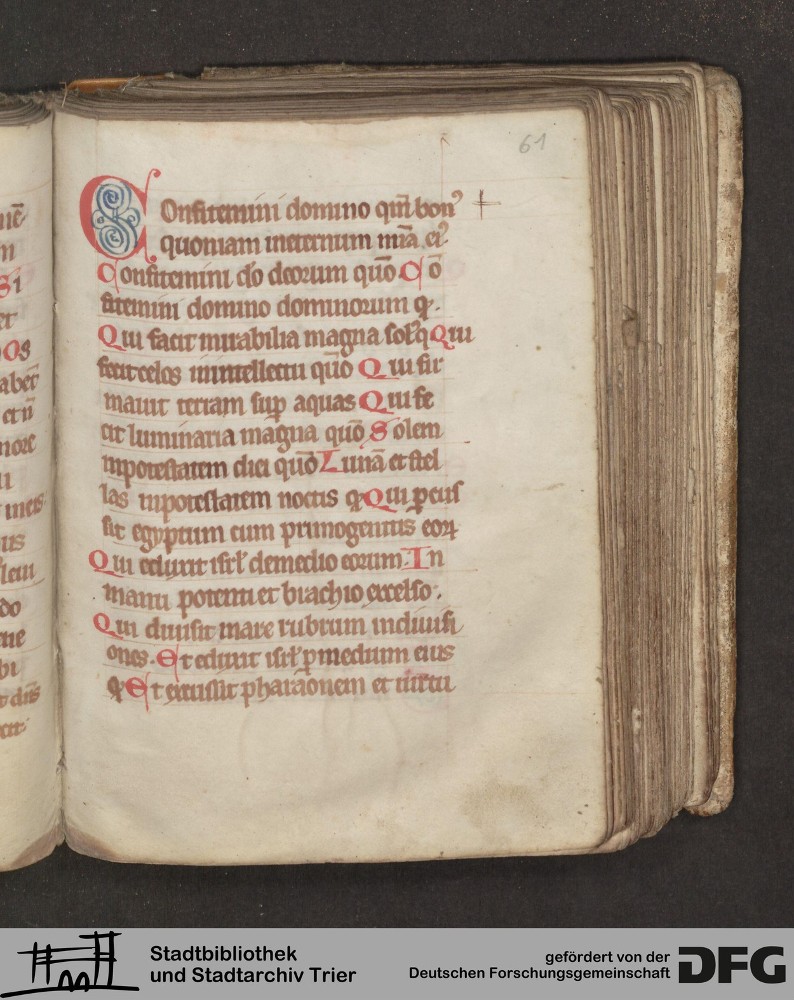 61
Confitemini domino qm̄ bonꝰ
quoniam ineternum mīa eiꝰ.
Confitemini do deorum quō Cō
fitemini domino dominorum q̄.
Qui facit mirabilia magna sol q̄ Qui
fecit celos inintellectu quō Qui fir
mauit terram sup aquas Qui fe
cit luminaria magna quō Solem
inpotestatem diei quō Lunā et stel
las inpotestatem noctis q̄ Qui ꝑcuſ
sit egyptum cum primogenitis eoꝝ
Qui eduxit iſrl' demedio eorum. In
manu potenti et brachio excelso.
Qui diuisit mare rubrum indiuisi
ones. Et eduxit iſrl' ꝑ medium eius
q̄ Et excussit pharaonem et uirtu
nē
n
Si
et
Os
abet
et ū
more
u
meis
us
do
ne
bi
dn̄s
Stadtbibliothek
und Stadtarchiv Trier
gefördert von der
Deutschen Forschungsgemeinschaft
DFG